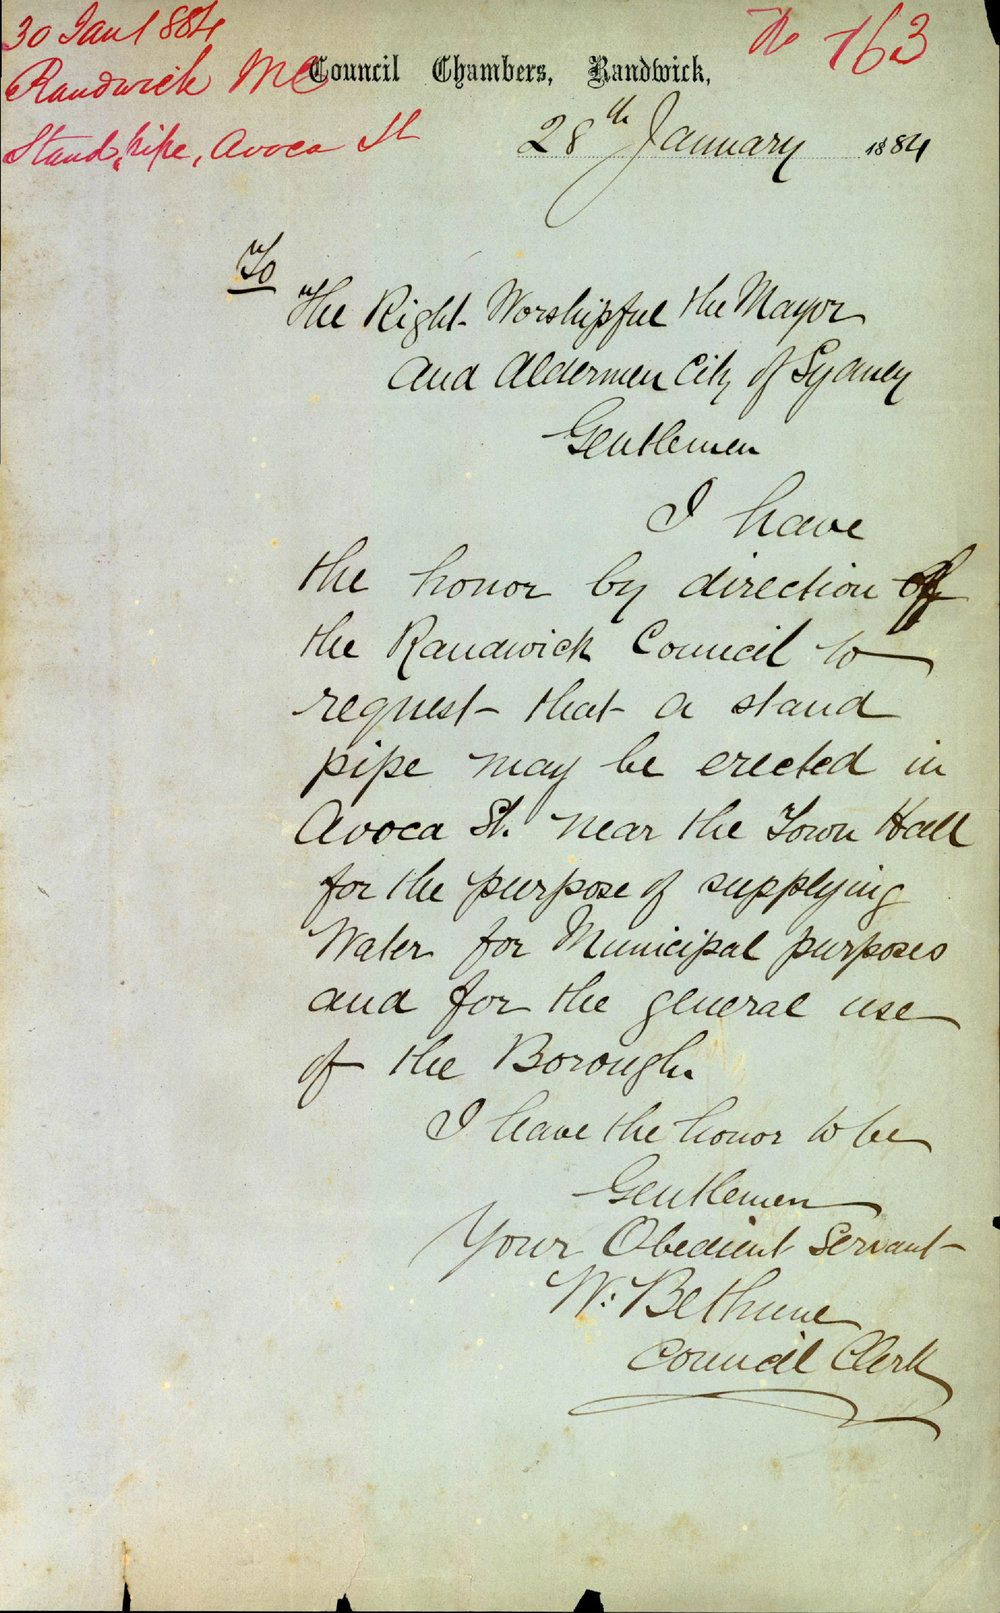 30 Jan 1884
Randwick MC
Stand pipe, Avoca St
No 163
Council Chambers, Randwick,
28th January 1884
To
The Right Worshipful the Mayor
and Aldermen City of Sydney
Gentlemen
I have
the honor by direction of
the Randwick Council to
request that a stand
pipe may be erected in
Avoca St. near the Town Hall
for the purpose of supplying
Water for Municipal purposes
and for the general use
of the Borough.
I have the honor to be
Gentlemen
Your Obedient Servant
W: Bethune
Council Clerk